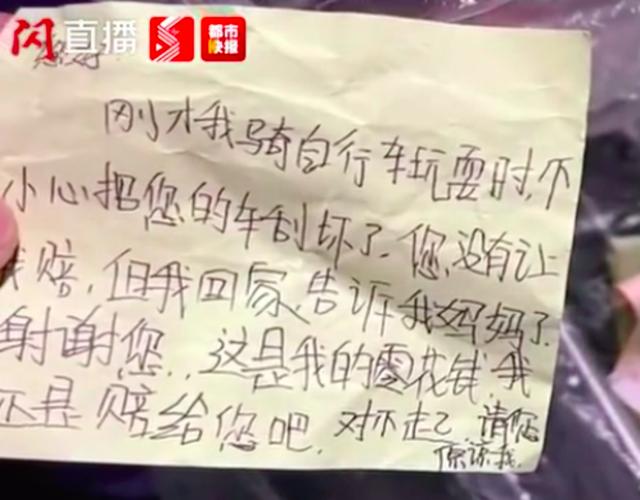 闪直播 都市快报
您好
刚才我骑自行车玩耍时,不
小心把您的车刮坏了.您没有让
我赔,但我回家告诉我妈妈了.
谢谢您..这是我的零花钱我
还是赔给您吧.对不起 请您
原谅我.